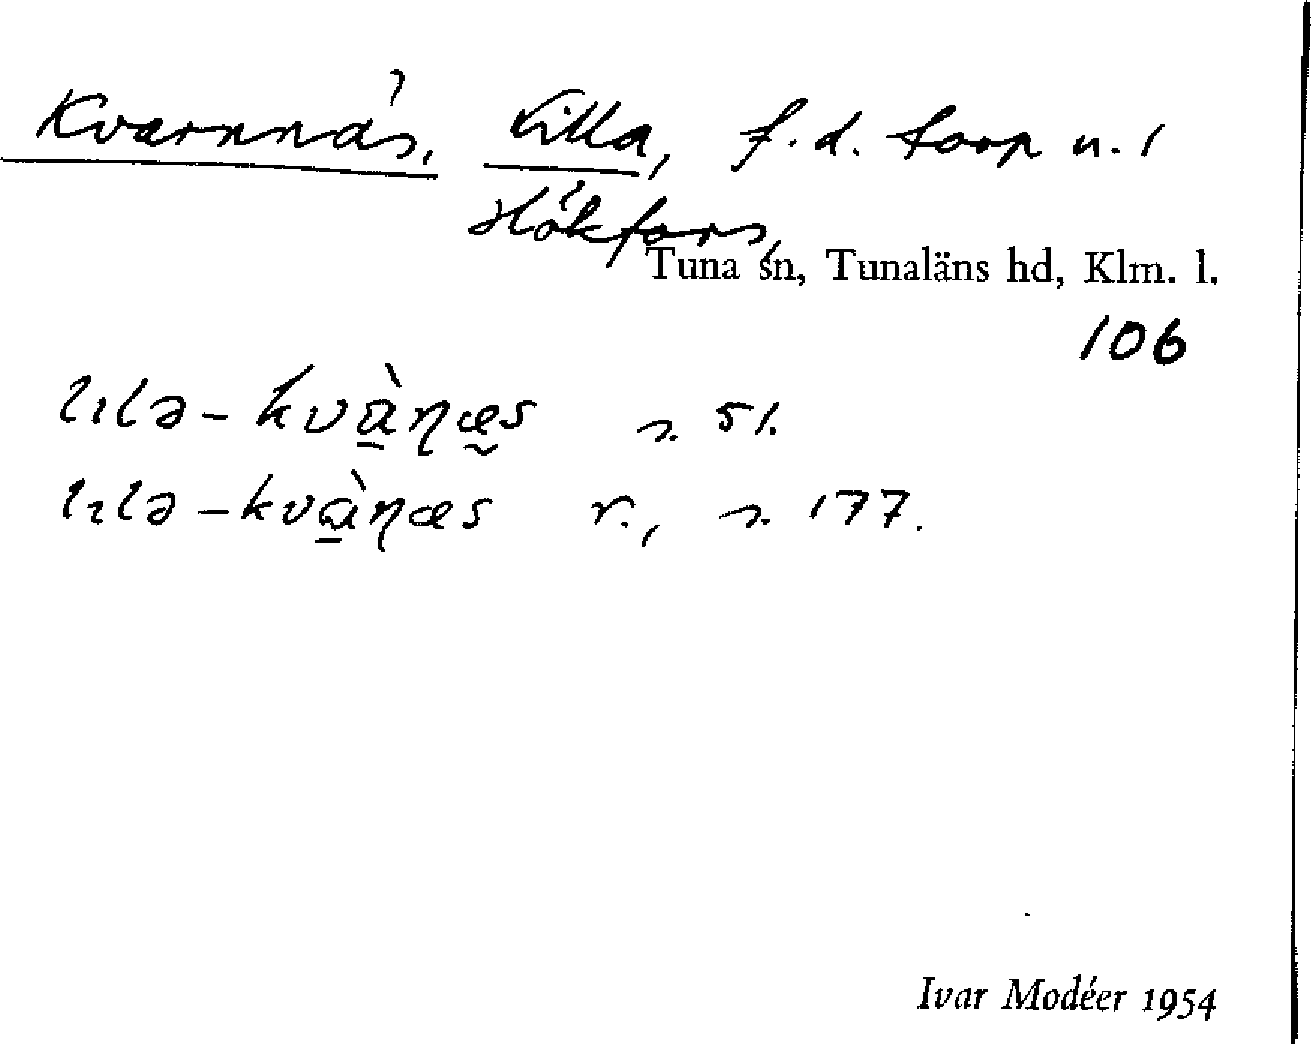 Kvarnnäs, Lilla, f.d. torp u. 1
Hökfors,
Tuna sn, Tunaläns hd, Klm. l.
106
lılə-kvàŋæs s. 51.
lılə-kvàŋæs r., s. 177.
Ivar Modéer 1954